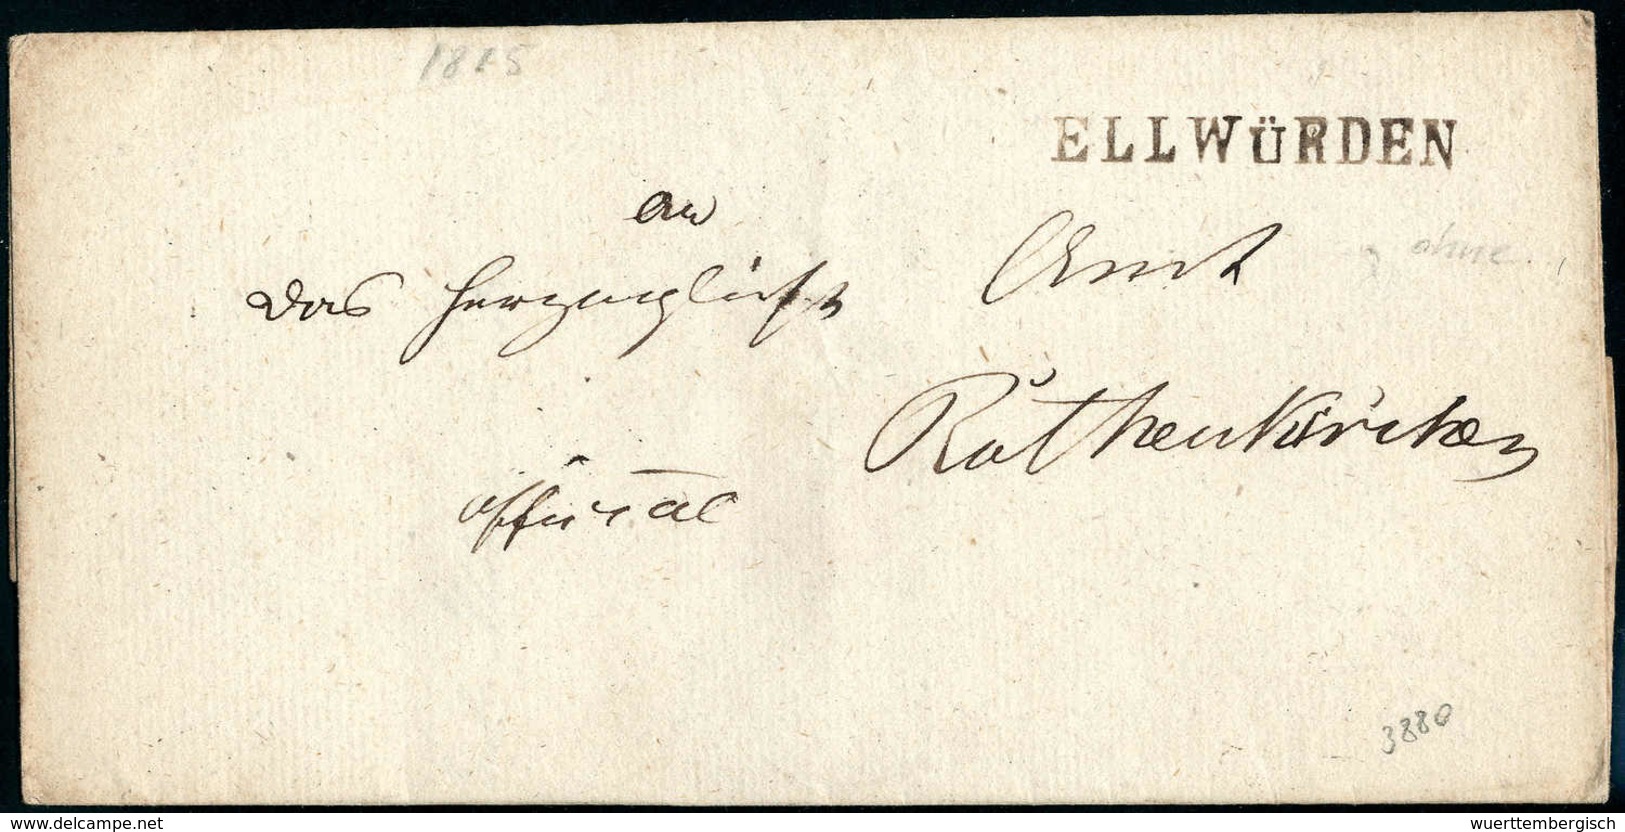 1815
ELLWÜRDEN
an
das Herzogliche Amt
ohne
Rothenkirchen
official
3880
www.delcampe.net
wuerttembergisch